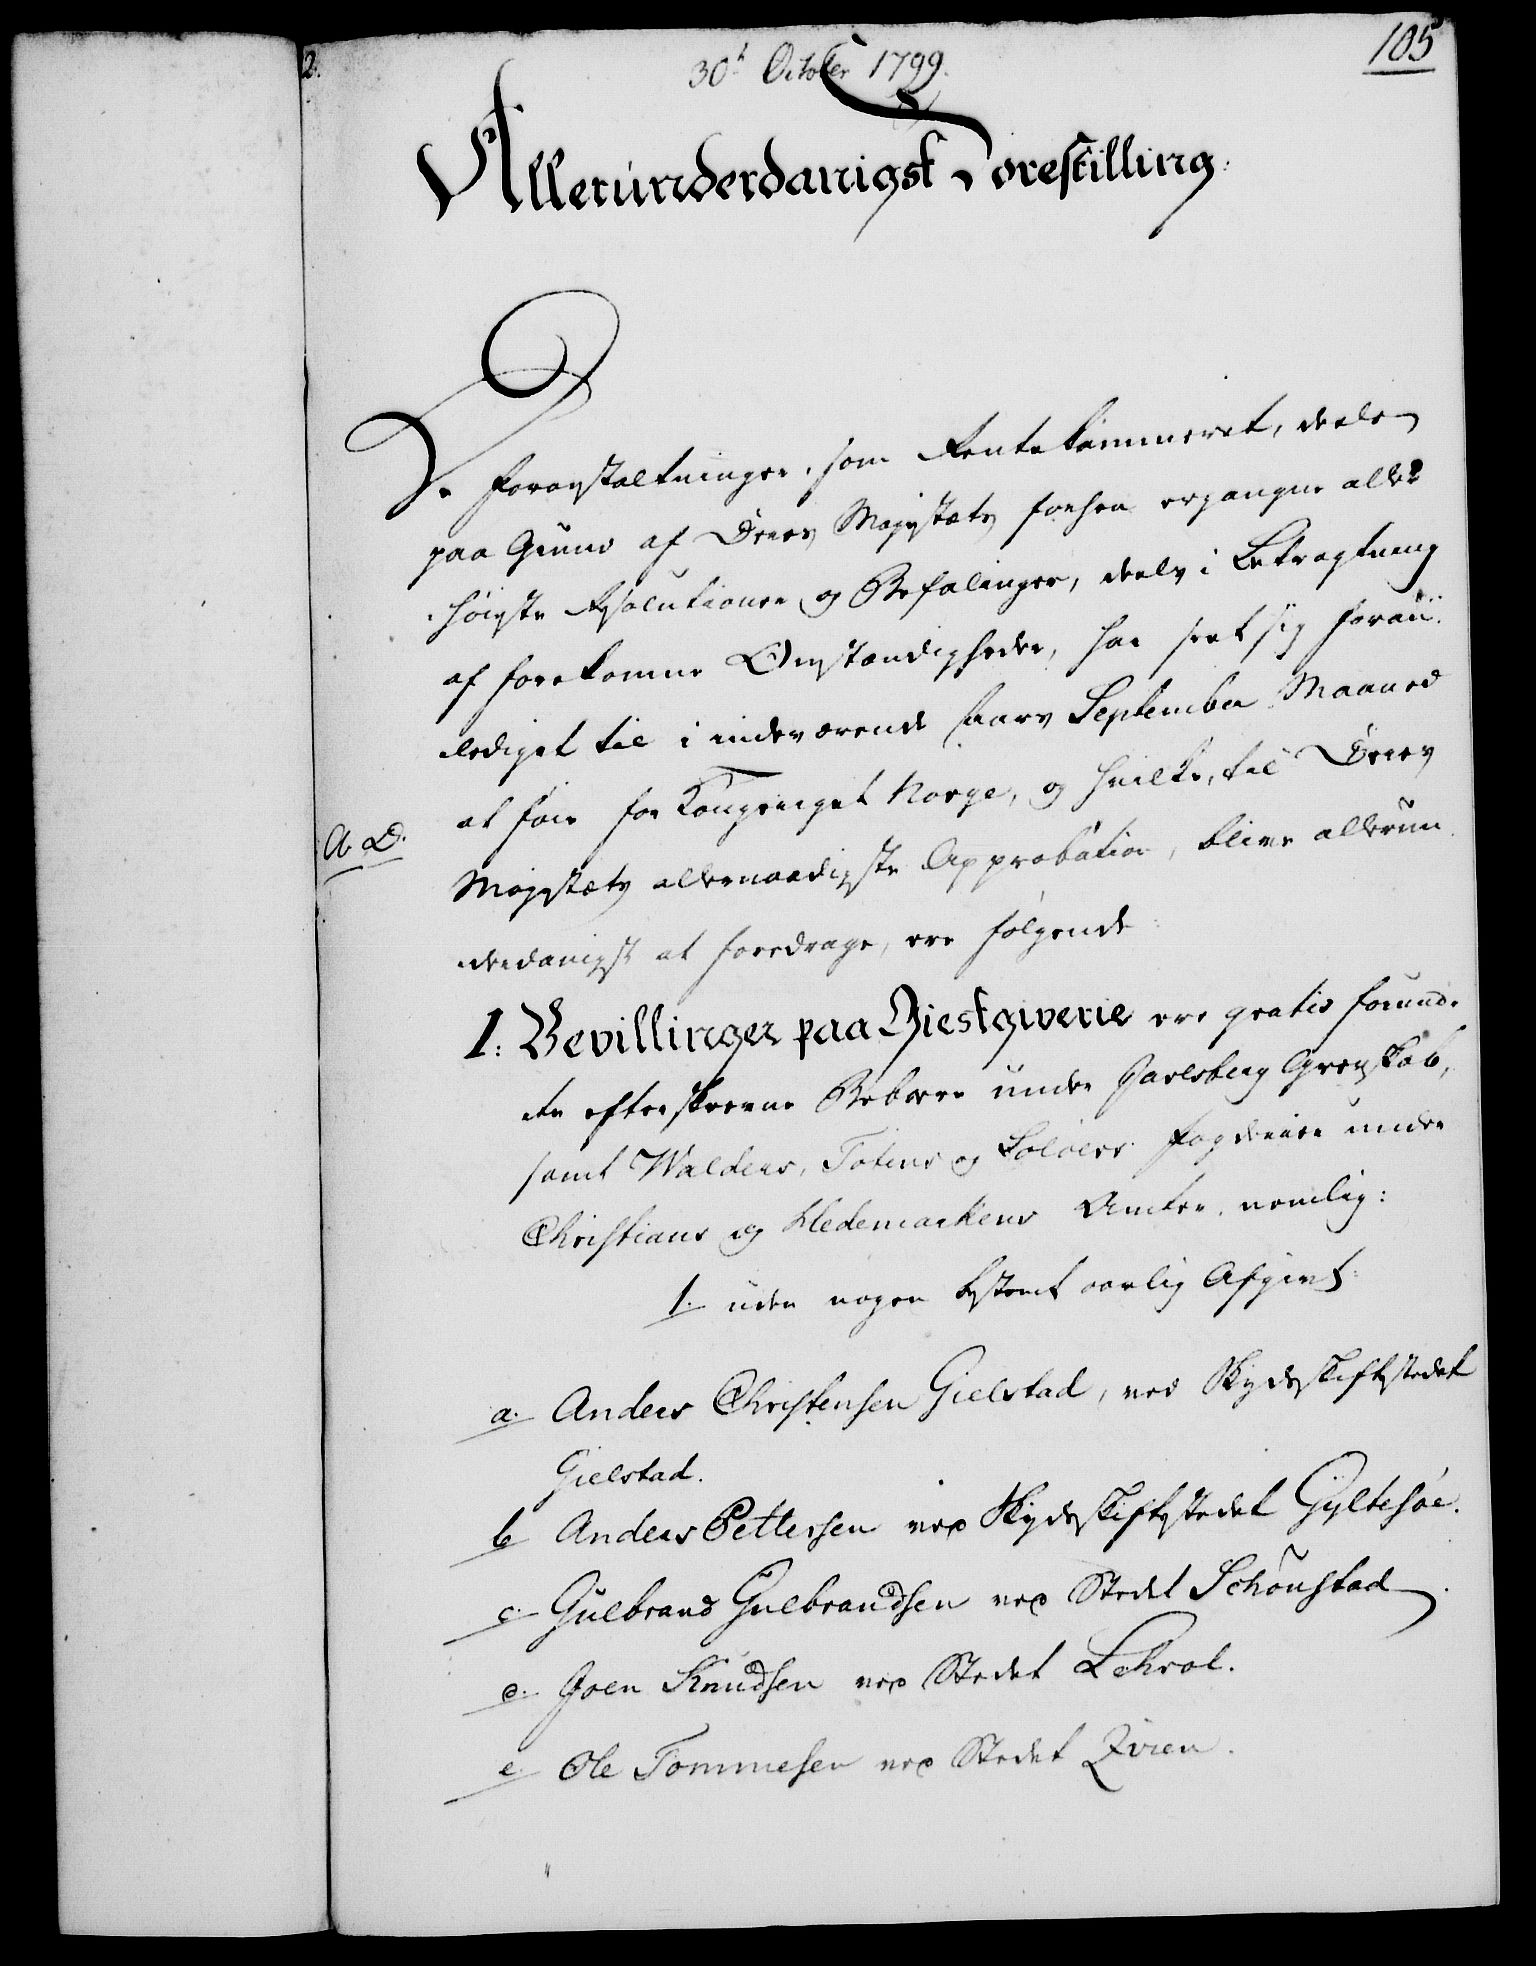 105
30t October 1799.
Allerunderdanigst Forestilling.
De Foranstaltninger, som Rentekammeret, deels
paa Grund af Deres Majestæts forhen ergangne aller
høieste Resolutioner og Befalinger, deels i Betragtning
af forekomne Omstændigheder, har seet sig foran
lediget til i indeværende Aars September Maaned
at føie for Kongeriget Norge, og hvilke, til Deres
A. D.
Majestæts allernaadigste Approbation, blive allerun
derdanigst at foredrage, ere følgende:
1. Bevillinger paa Giestgiverie ere gratis forund-
te efterskrevne Beboere under Jarlsberg Grevskab,
samt Walders, Totens og Soløers Fogderier under
Christians og Hedemarkens Amter, nemlig:
1. uden nogen bestemt aarlig Afgivt:
a. Anders Christensen Gielstad, ved Skydsskiftestedet
Gielstad.
b Anders Pettersen ved Skydsskiftestedet Gyltesøe.
c. Gulbrand Gulbrandsen ved Stedet Schønstad.
d. Joen Knudsen ved Stedet Løkrol.
e. Ole Tommesen ved Stedet Qvien.